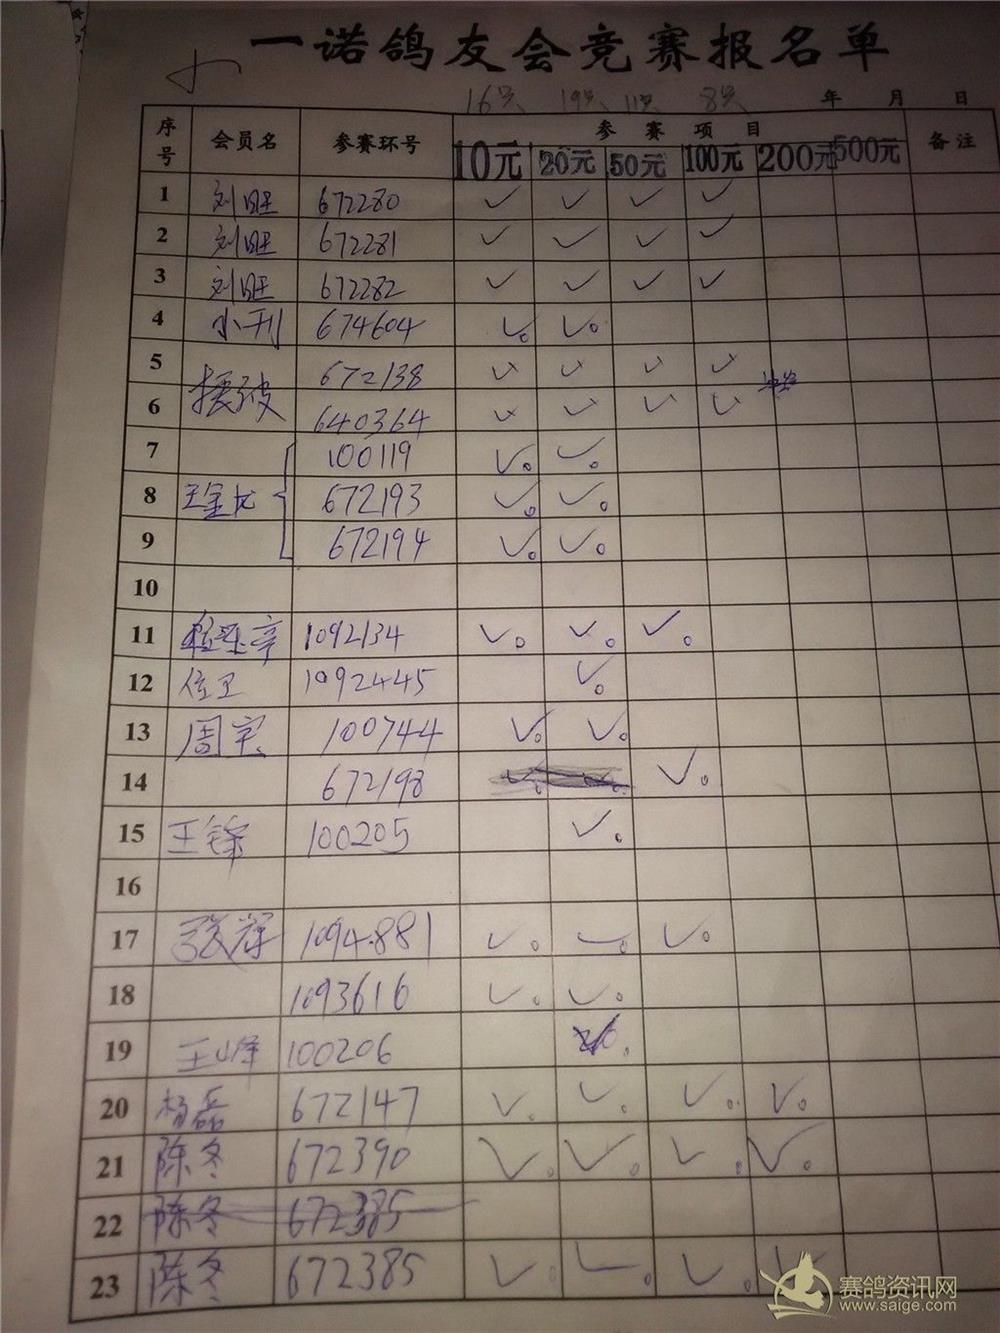 一诺鸽友会竞赛报名单
16只 19只 11只 8只 年 月 日
序号 会员名 参赛环号 参赛项目 备注
10元 20元 50元 100元 200元 500元
1 刘旺 672280 ✓ ✓ ✓ ✓
2 刘旺 672281 ✓ ✓ ✓ ✓
3 刘旺 672282 ✓ ✓ ✓ ✓
4 小刊 674604 ✓。 ✓。
5 672138 ✓ ✓ ✓ ✓
6 640364 ✓ ✓ ✓ ✓
7 100119 ✓。 ✓。
8 王金龙 672193 ✓。 ✓。
9 672194 ✓。 ✓。
10
11 1092134 ✓。 ✓。 ✓。
12 1092445 ✓。
13 周宝 100744 ✓。 ✓。
14 672198 ✓。
15 王锋 100205 ✓。
16
17 张辉 1094881 ✓。 ✓。 ✓。
18 1093616 ✓。 ✓。
19 王峰 100206
20 杨磊 672147 ✓。 ✓。 ✓。 ✓。
21 陈冬 672390 ✓。 ✓。 ✓。 ✓。
22 陈冬 672385
23 陈冬 672385 ✓。 ✓。 ✓。 ✓
赛鸽资讯网
www.saige.com